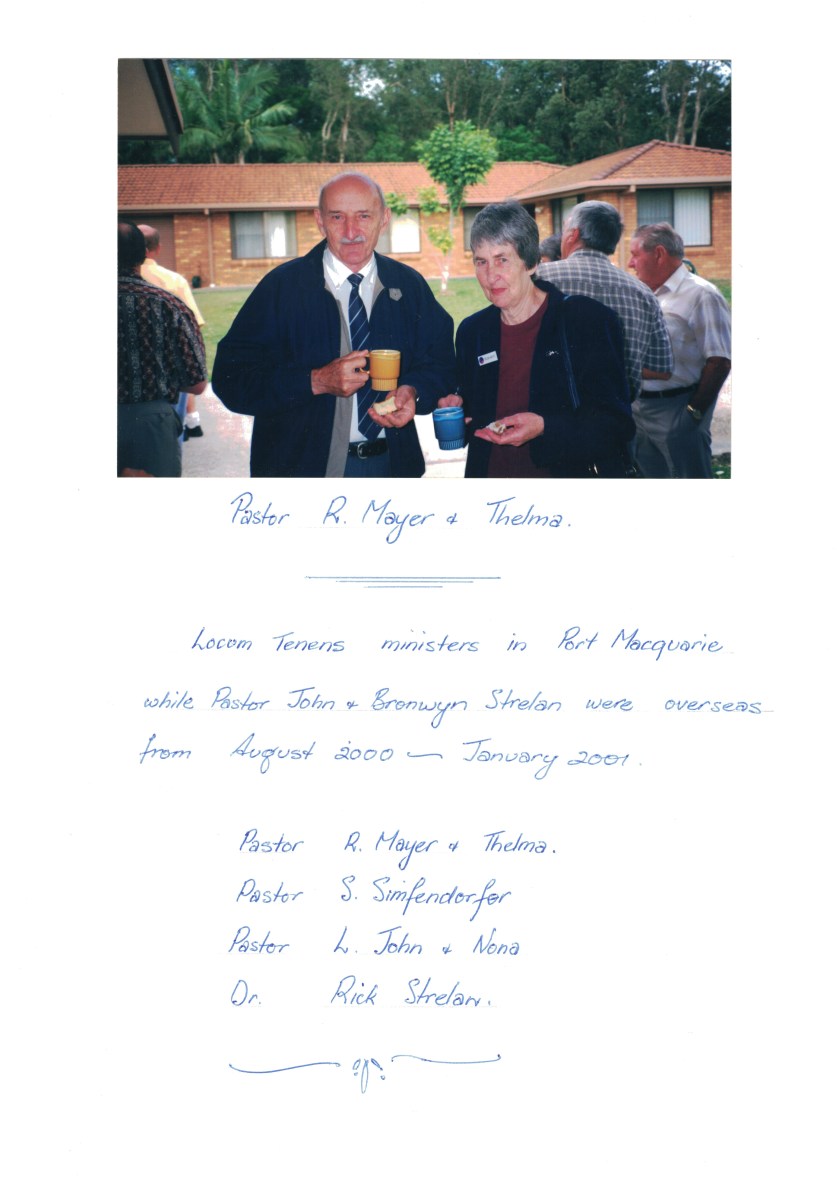 Pastor R. Mayer & Thelma.
Locum Tenens ministers in Port Macquarie
while Pastor John & Bronwyn Strelan were overseas
from August 2000 — January 2001.
Pastor R. Mayer & Thelma.
Pastor S. Simfendorfer
Pastor L. John & Nona
Dr. Rick Strelan.